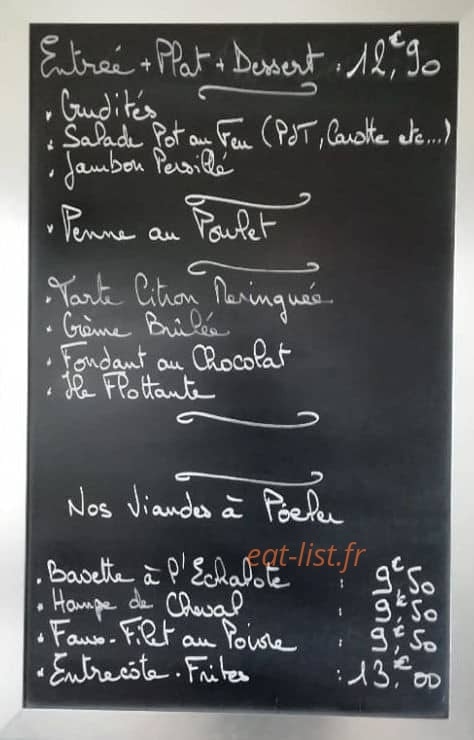 Entrée + Plat + Dessert : 12,€90
• Crudités
• Salade Pot au Feu (PdT, Carotte etc...)
• Jambon Persillé
• Penne au Poulet
• Tarte Citron Meringuée
• Crème Brûlée
• Fondant au Chocolat
• Ile Flottante
Nos Viandes à Poêler
eat-list.fr
• Bavette à l'Echalote : 9,€50
• Hampe de Cheval : 9,€50
• Faux-Filet au Poivre : 9,€50
• Entrecôte-Frites : 13,€00